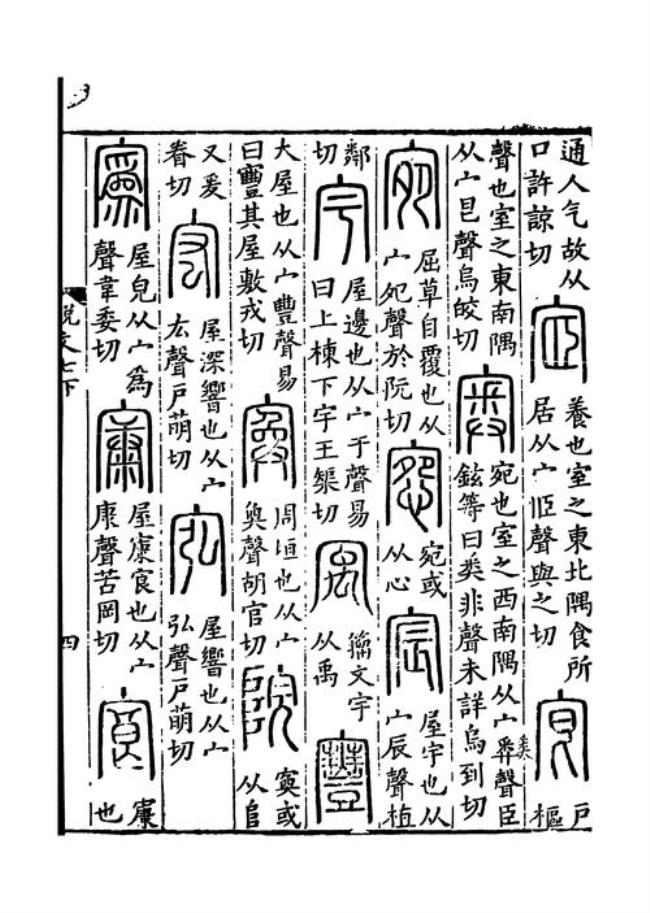 通人气故从
口許諒切
宧
養也室之東北隅食所
居从宀𦣝聲與之切
㝔
戶
樞
聲也室之東南隅
从宀㫐聲烏皎切
奧
宛也室之西南隅从宀𢍏聲臣
鉉等曰𢍏非聲未詳烏到切
宛
屈草自覆也从
宀夗聲於阮切
惌
宛或
从心
宸
屋宇也从
宀辰聲植
鄰
切
宇
屋邊也从宀于聲易
曰上棟下宇王榘切
㝢
籒文宇
从禹
寷
大屋也从宀豐聲易
曰寷其屋敷戎切
寏
周垣也从宀
奐聲胡官切
院
寏或
从𨸏
又爰
眷切
宏
屋深響也从宀
厷聲戶萌切
宖
屋響也从宀
弘聲戶萌切
寪
屋皃从宀爲
聲韋委切
㝩
屋㝩㝗也从宀
康聲苦岡切
㝗
㝩
也
說文七下
四